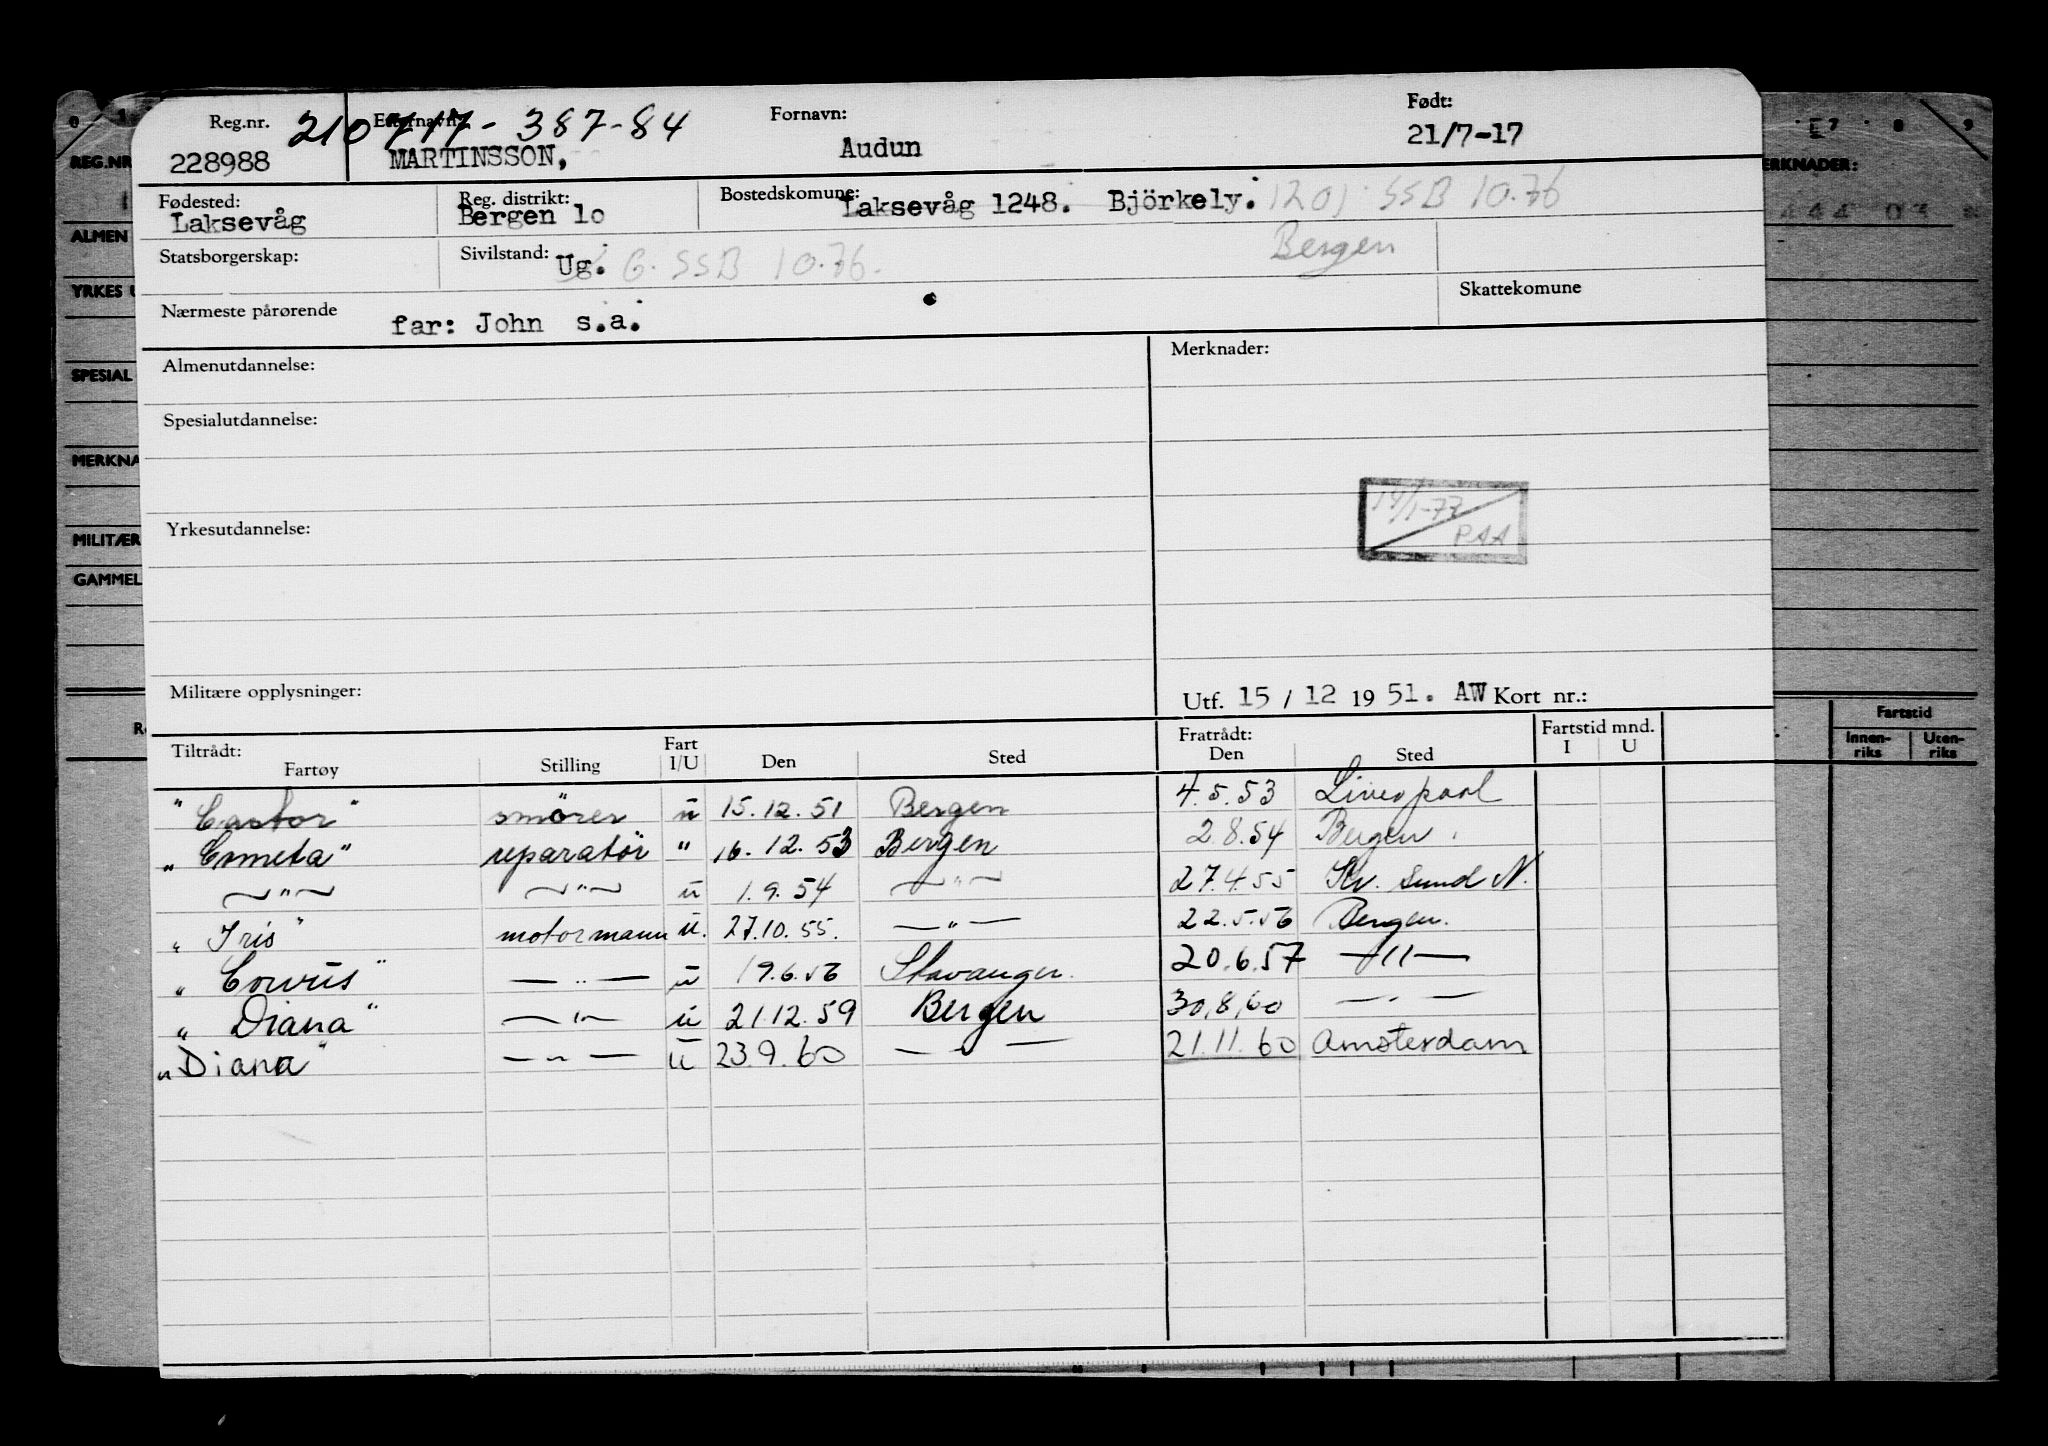 Reg.nr. 210717-387-84 Etternavn: Fornavn: Født:
228988 MARTINSSON, Audun 21/7-17
Fødested: Reg. distrikt: Bostedskommune:
Laksevåg Bergen 10 Laksevåg 1248. Björkely. 1201 SSB 10.76
Bergen
Statsborgerskap: Sivilstand: Ug. G. SSB 10.76.
Nærmeste pårørende far: John s.a. Skattekomune
Almenutdannelse: Merknader:
Spesialutdannelse:
14/1-77 PAA
Yrkesutdannelse:
Militære opplysninger: Utf. 15 / 12 19 51. AW Kort nr.:
Tiltrådt: Fart Fratrådt: Fartstid mnd.
Fartøy Stilling I/U Den Sted Den Sted I U
"Castor" smører u 15.12.51 Bergen 4.5.53 Liverpool
"Cometa" reparatör " 16.12.53 Bergen 2.8.54 Bergen
—"— —"— u 1.9.54 —"— 27.4.55 Kr. sund N.
"Iris" motormann u. 27.10.55. —"— 22.5.56 Bergen.
"Corvus" —"— u 19.6.56 Stavanger. 20.6.57 —"—
"Diana" —"— u 21.12.59 Bergen 30.8.60 —"—
"Diana" —"— u 23.9.60 —"— 21.11.60 Amsterdam
REG.NR
ALMEN
YRKES U
SPESIAL
MERKNA
MILITÆR
GAMMEL
ERKNADER:
Fartstid
Innen-riks Uten-riks